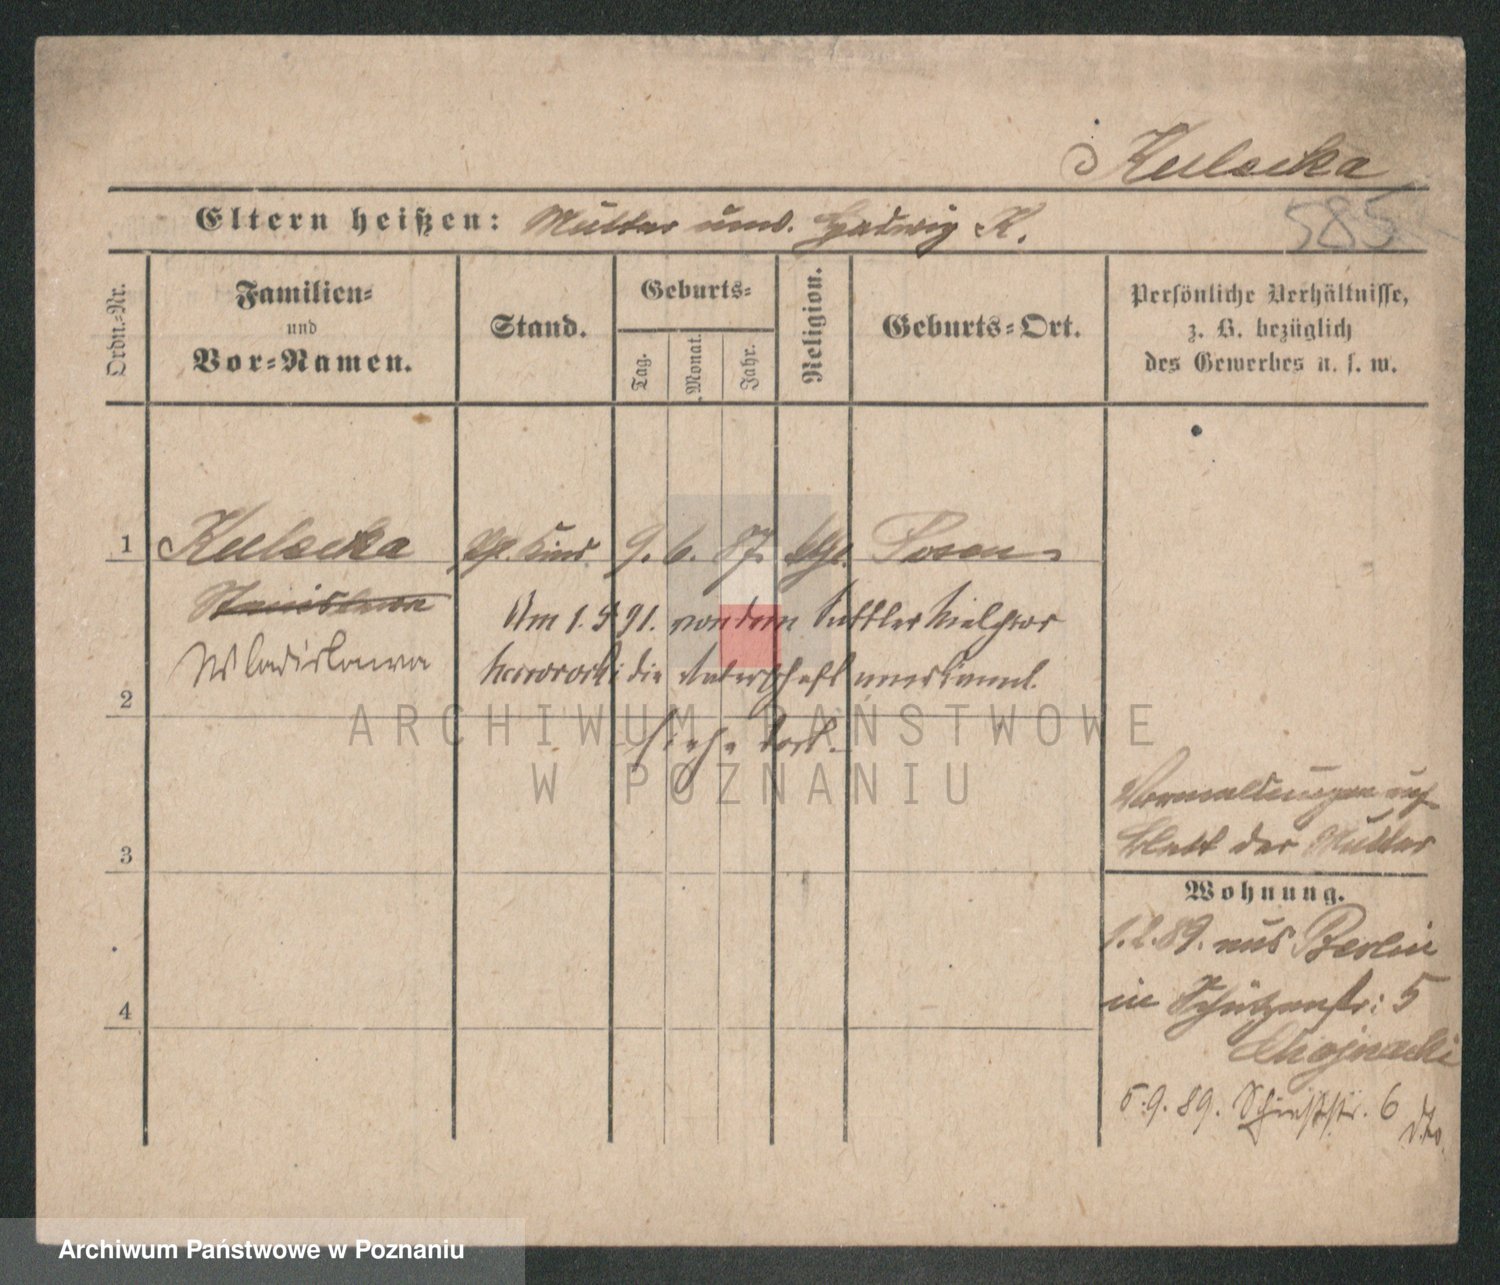 Kulecka
585
Eltern heißen: Mutter unv. Hedwig K.
Ordn.-Nr.
Familien-
und
Vor-Namen.
Stand.
Geburts-
Tag.
Monat.
Jahr.
Religion.
Geburts-Ort.
Persönliche Verhältnisse,
z. B. bezüglich
des Gewerbes u. s. w.
1 Kulecka Kind 9. 6. 87. Posen
Stanislawa
Wladislawa
Am 1. 91. von dem Sattler
die Vaterschaft anerkannt.
siehe dort.
2
3
4
ARCHIWUM PAŃSTWOWE
W POZNANIU
Vormaldungen auf
Blatt der Mutter
Wohnung.
1.2.89. aus Berlin
in Schützenstr: 5
Chojnacki
5.9.89. 6 dto
Archiwum Państwowe w Poznaniu